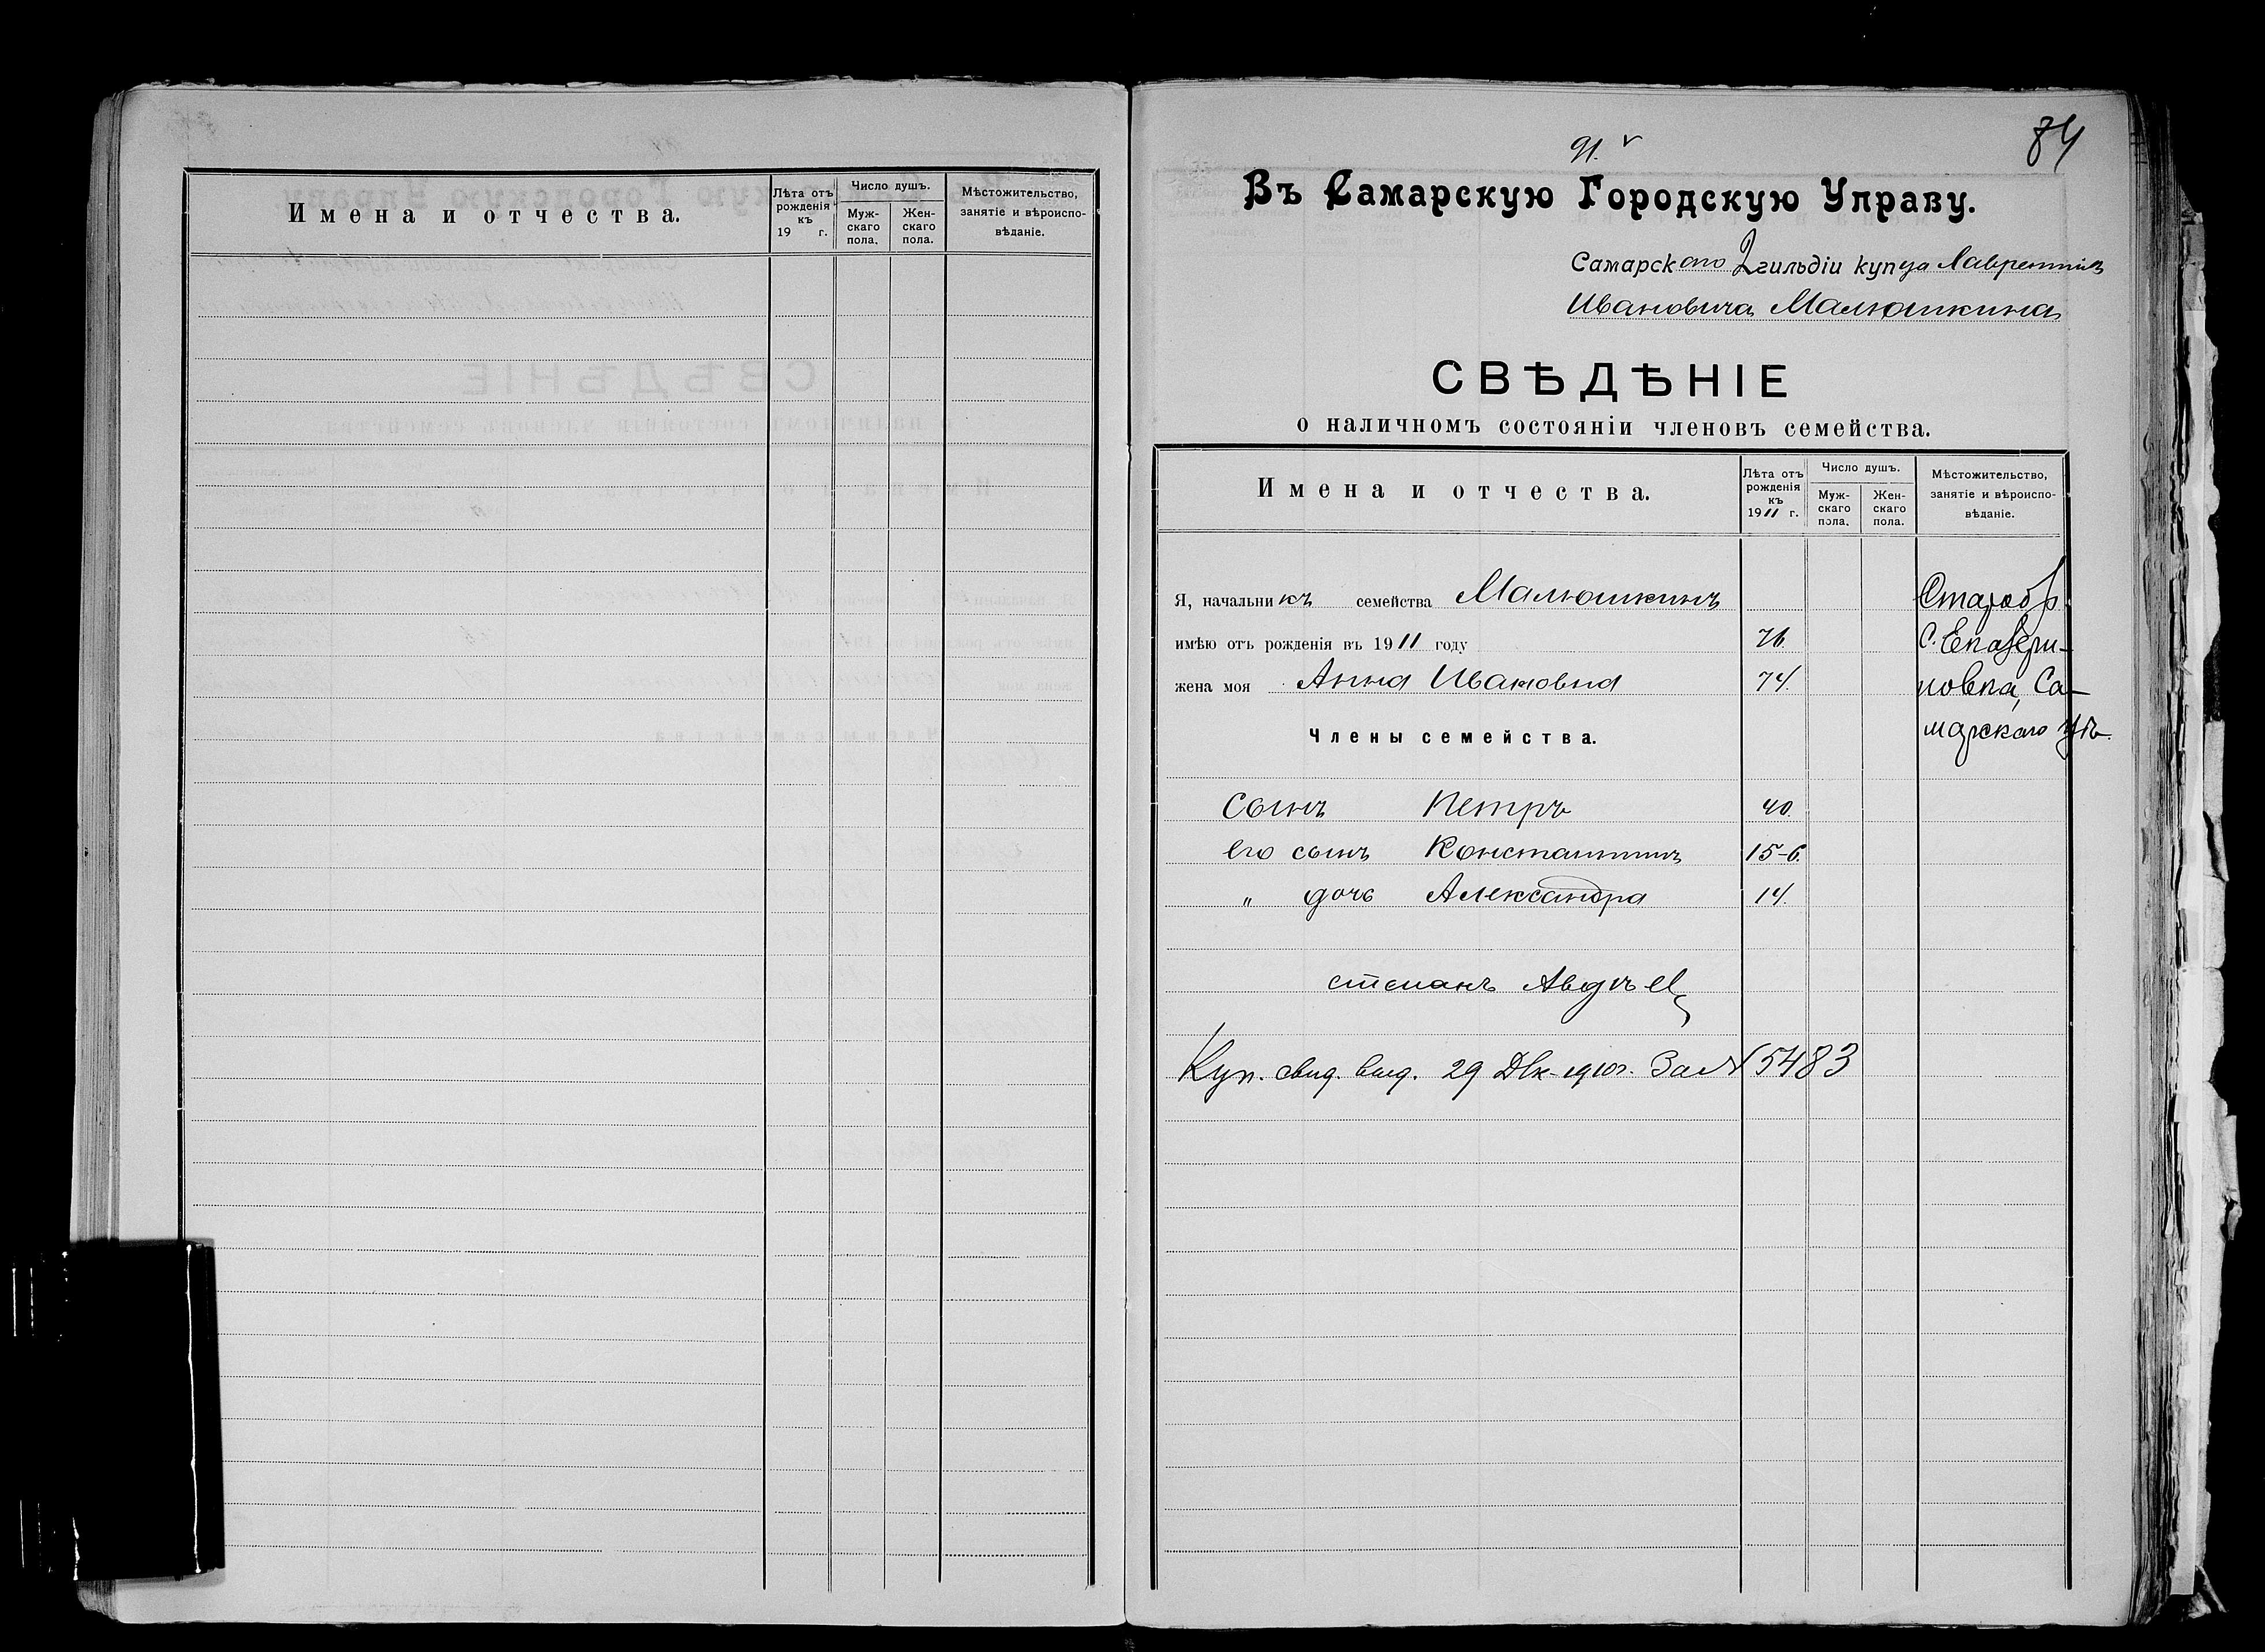 Имена и отчества.
Лѣта отъ рожденія къ 19 г.
Число душъ.
Муж-скаго пола.
Жен-скаго пола.
Мѣстожительство, занятіе и вѣроиспо-вѣданіе.
91. v
84
Въ Самарскую Городскую Управу.
Самарскаго 2 гильдіи купца Лаврентія
Ивановича Малюшкина
СВѢДѢНІЕ
о наличномъ состояніи членовъ семейства.
Имена и отчества.
Лѣта отъ рожденія къ 1911 г.
Число душъ.
Муж-скаго пола.
Жен-скаго пола.
Мѣстожительство, занятіе и вѣроиспо-вѣданіе.
Я, начальникъ семейства Малюшкинъ Старобр.
имѣю отъ рожденія въ 1911 году 76. С. Екатери-
жена моя Анна Ивановна 74. новка, Са-
Члены семейства. марскаго уѣ.
Сынъ Петръ 40.
его сынъ Константинъ 15-6.
" дочь Александра 14.
степанъ Авдѣев
Куп. свид. выд. 29 Дек-1910г. За № 5483